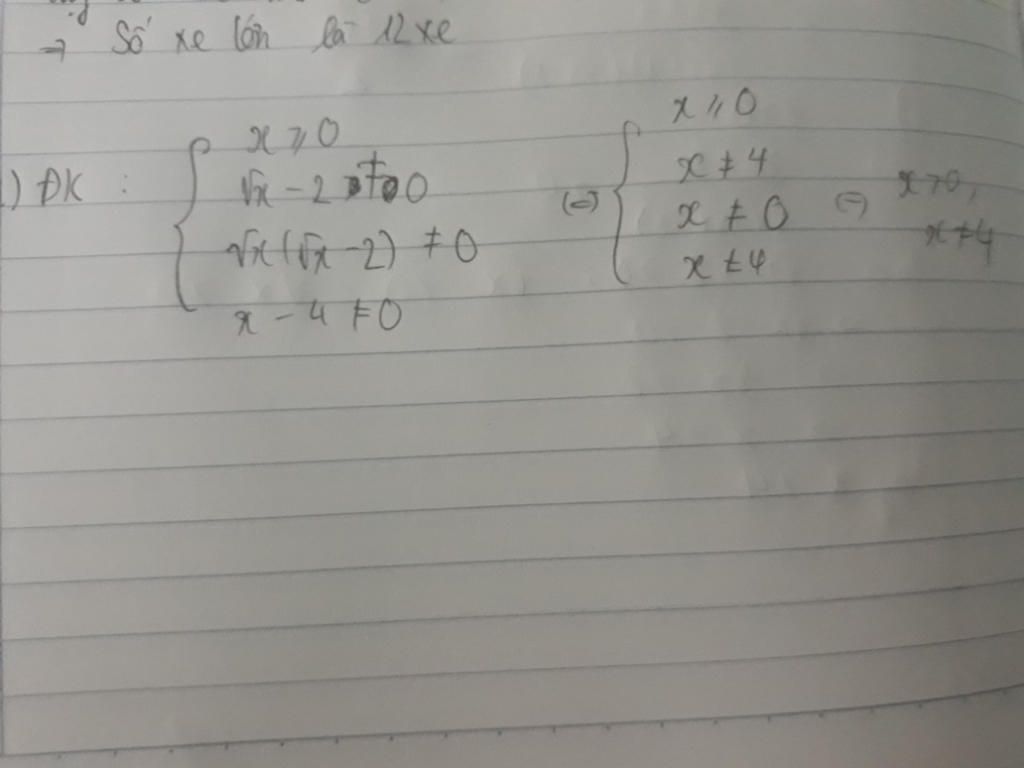 ⇒ Số xe lớn là 12 xe
) ĐK :
x ⩾ 0
√x - 2 ≠ 0
√x(√x - 2) ≠ 0
x - 4 ≠ 0
(=)
x ⩾ 0
x ≠ 4
x ≠ 0
x ≠ 4
(=) x > 0,
x ≠ 4